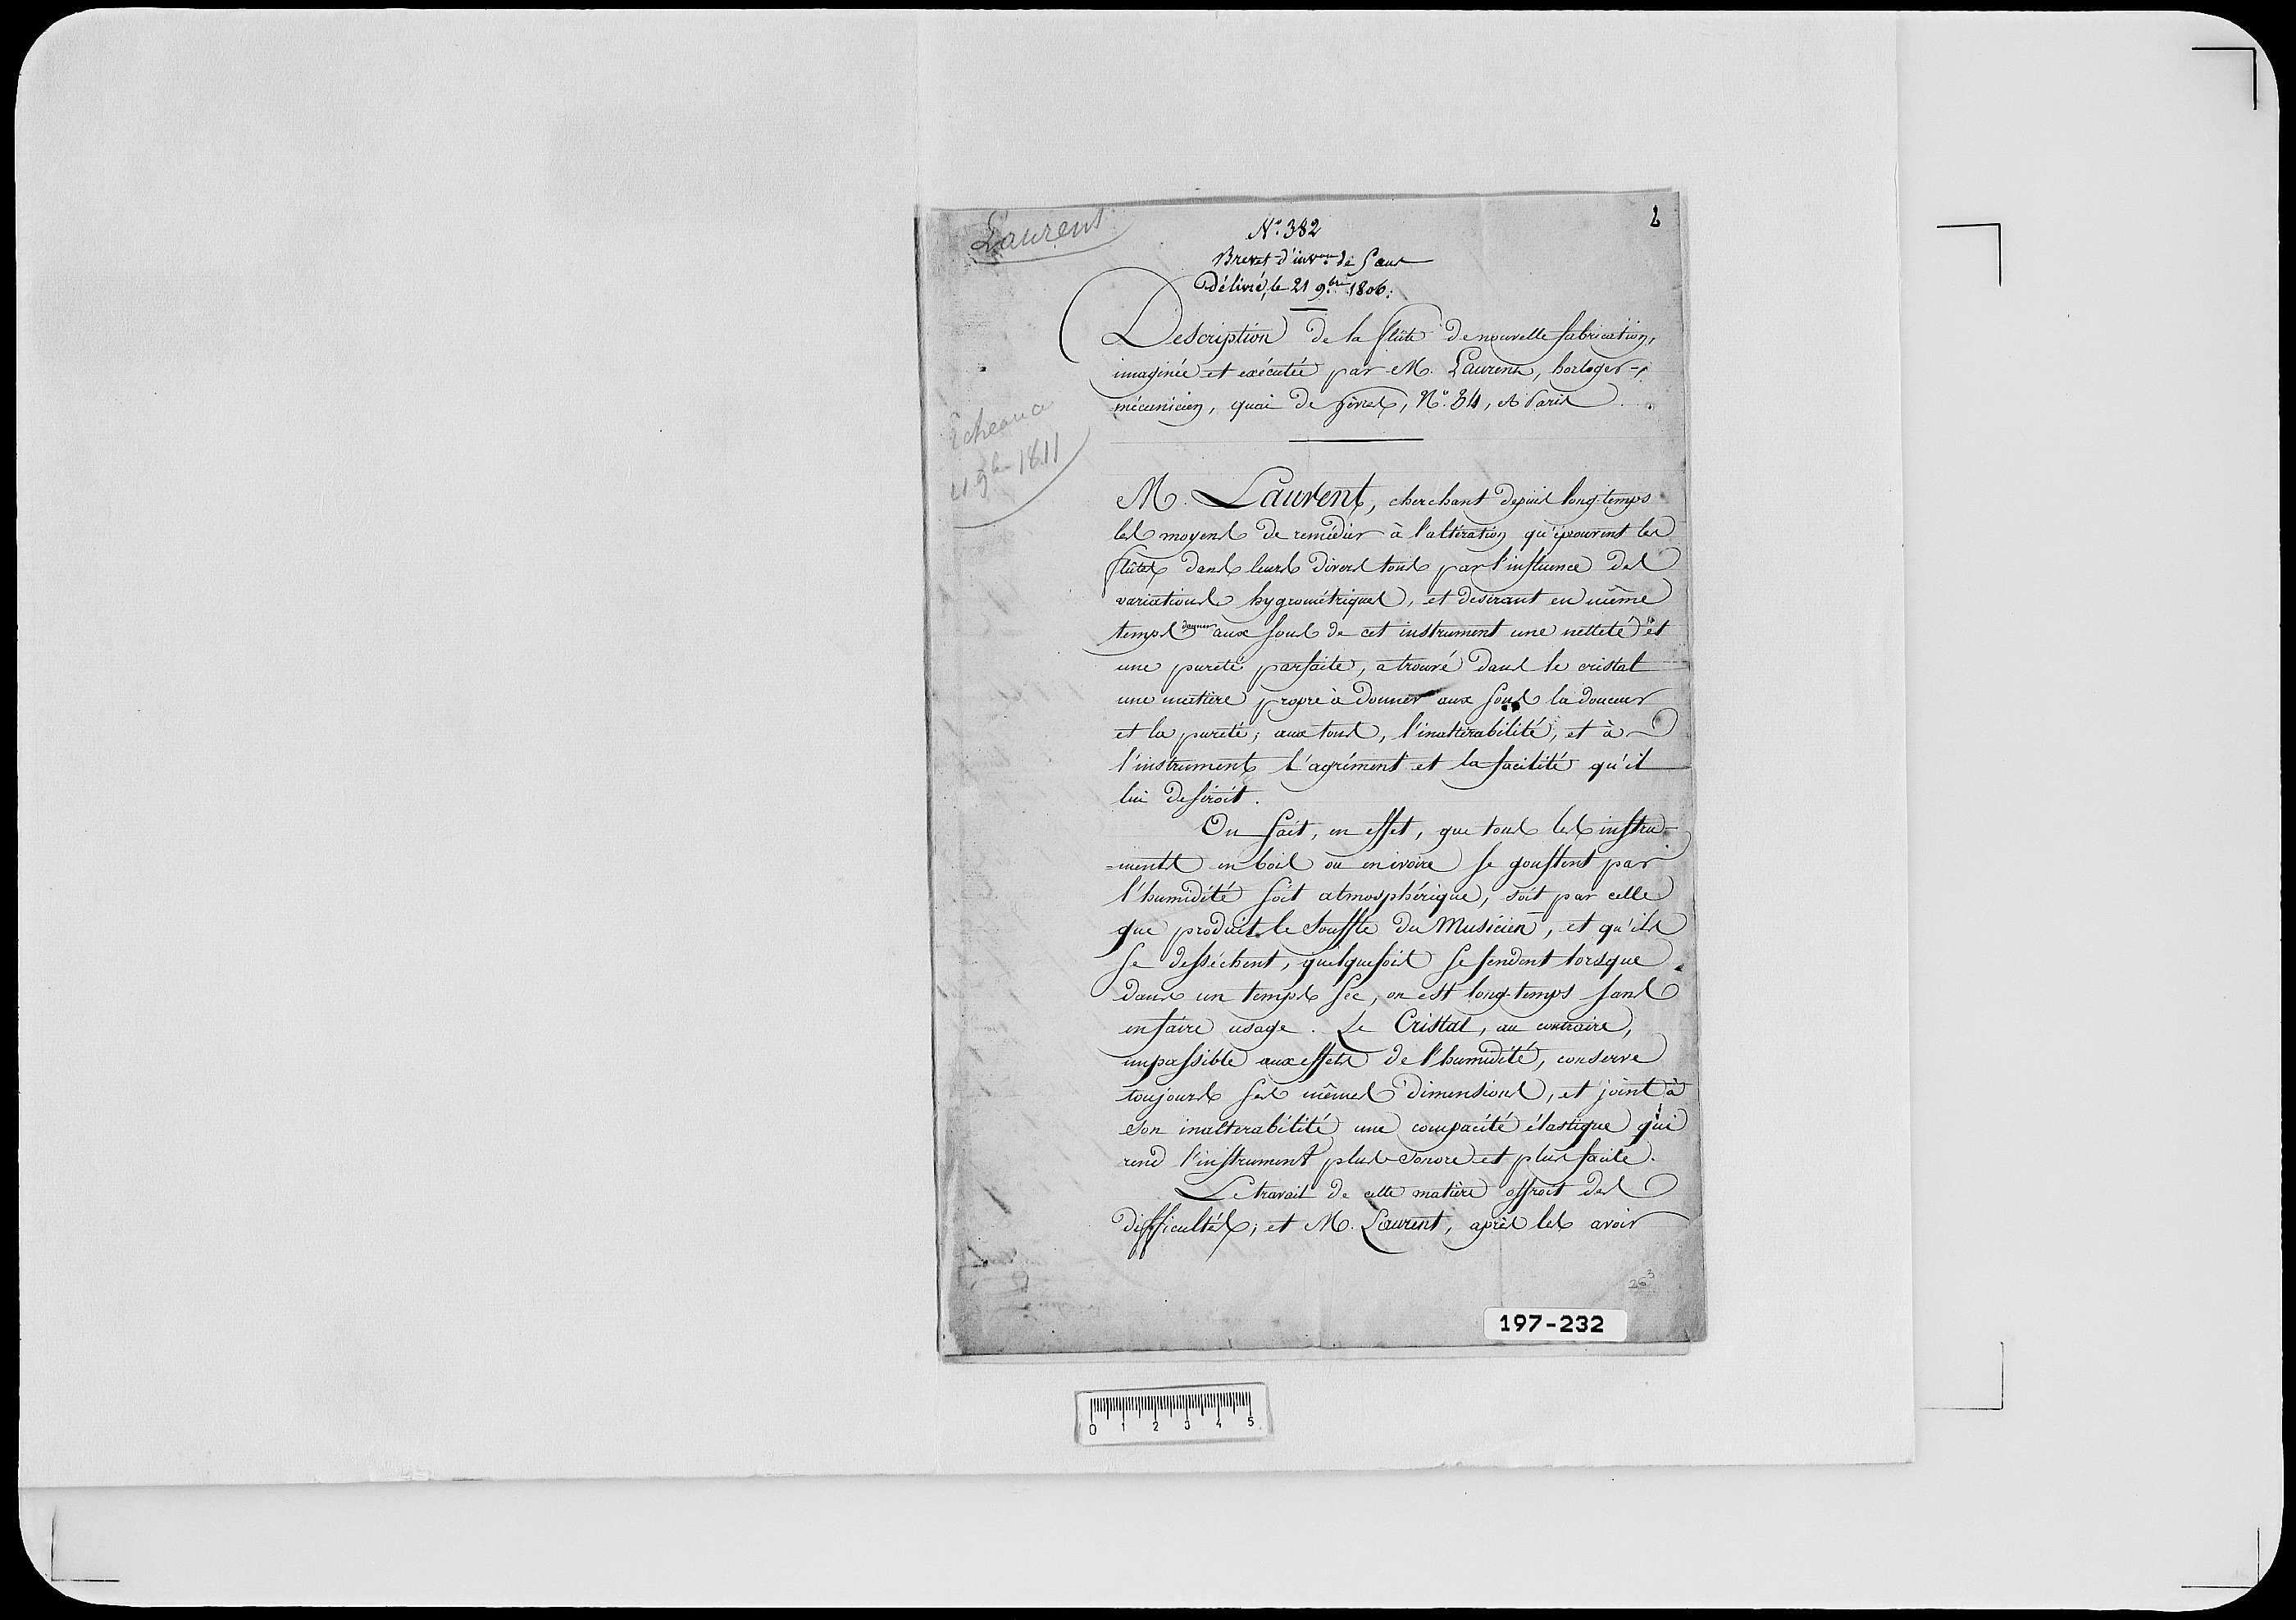 Laurent
2
N.º 382
Brevet d'inv.on de 5 ans
Délivré, le 21 9.bre 1806.
Description de la flûte de nouvelle fabrication,
imaginée et exécutée par M. Laurent, horloger-
mécanicien, quai de Gèvres, N.º 34, à Paris
Echeance
21 9bre 1811
M. Laurent, cherchant depuis long-temps
les moyens de remédier à l'altération qu'éprouvent les
flûtes dans leurs divers tons par l'influence des
variations hygrométriques, et desirant en même
temps donner aux sons de cet instrument une netteté et
une pureté parfaite, a trouvé dans le cristal
une matière propre à donner aux sons la douceur
et la pureté; aux tons, l'inaltérabilité, et à
l'instrument l'agrément et la facilité qu'il
lui desiroit.
On sait, en effet, que tous les instru-
=ments en bois ou en ivoire se gonflent par
l'humidité soit atmosphérique, soit par celle
que produit le souffle du Musicien, et qu'ils
se dessèchent, quelquefois se fendent lorsque
dans un temps sec, on est long-temps sans
en faire usage. Le Cristal, au contraire,
impassible aux effets de l'humidité, conserve
toujours ses mêmes dimensions, et joint à
son inalterabilité une compacité élastique qui
rend l'instrument plus sonore et plus facile.
Le travail de cette matière offroit des
difficultés; et M. Laurent, après les avoir
263
197-232
0 1 2 3 4 5